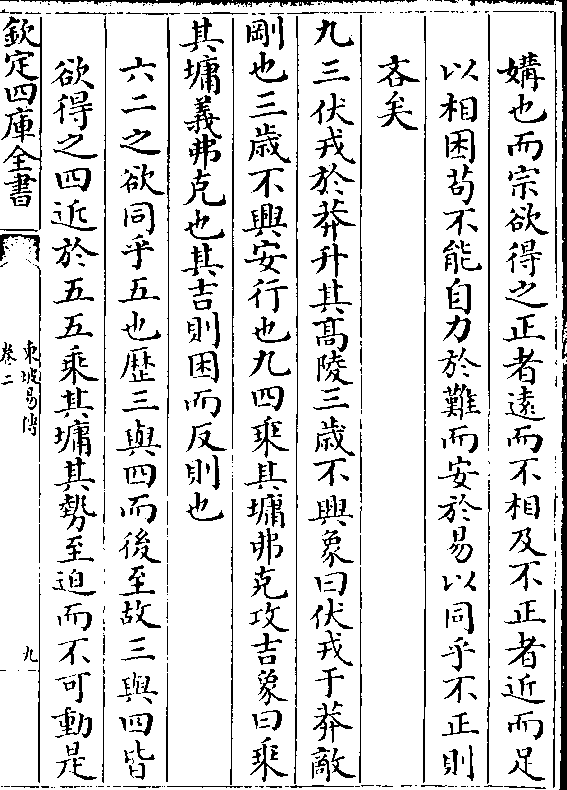 媾也而宗欲得之正者遠而不相及不正者近而足
以相困苟不能自力於難而安於易以同乎不正則
吝矣
九三伏戎於莽升其髙陵三歳不興象曰伏戎于莽敵
剛也三歳不興安行也九四乘其墉弗克攻吉象曰乘
其墉義弗克也其吉則困而反則也
六二之欲同乎五也歴三與四而後至故三與四皆
欲得之四近於五五乘其墉其勢至迫而不可動是
欽定四庫全書
東坡易傳
卷二
九